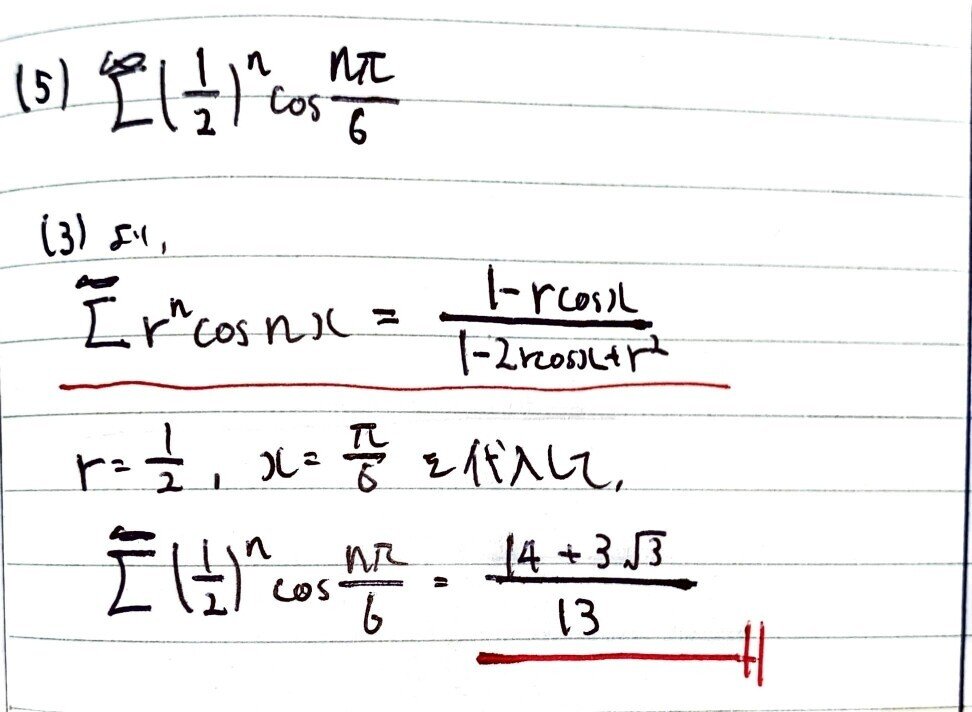 (5) ∞Σ(1/2)^n cos nπ/6
(3) より,
∞Σ r^n cos nx = (1-rcosx)/(1-2rcosx+r^2)
r=1/2, x=π/6 を代入して,
∞Σ(1/2)^n cos nπ/6 = (14+3√3)/13